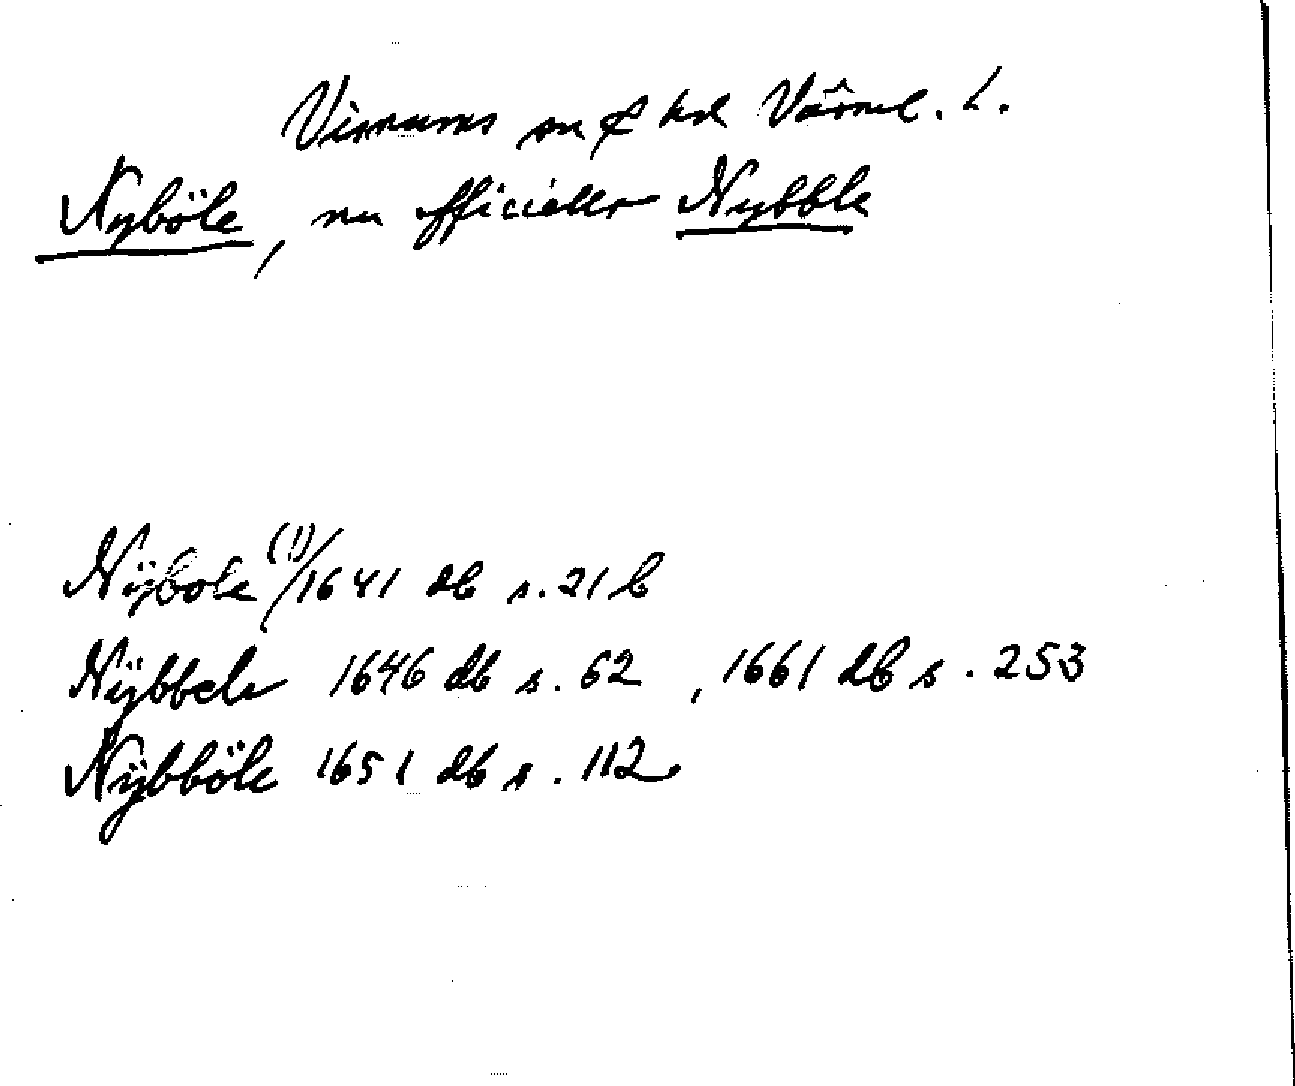 Visnums sn & hd Värml. L.
Nyböle, nu officiellt Nybble
Nÿbole (!) / 1641 db s. 21 b
Nÿbbele 1646 db s. 62, 1661 db s. 253
Nÿbböle 1651 db s. 112.